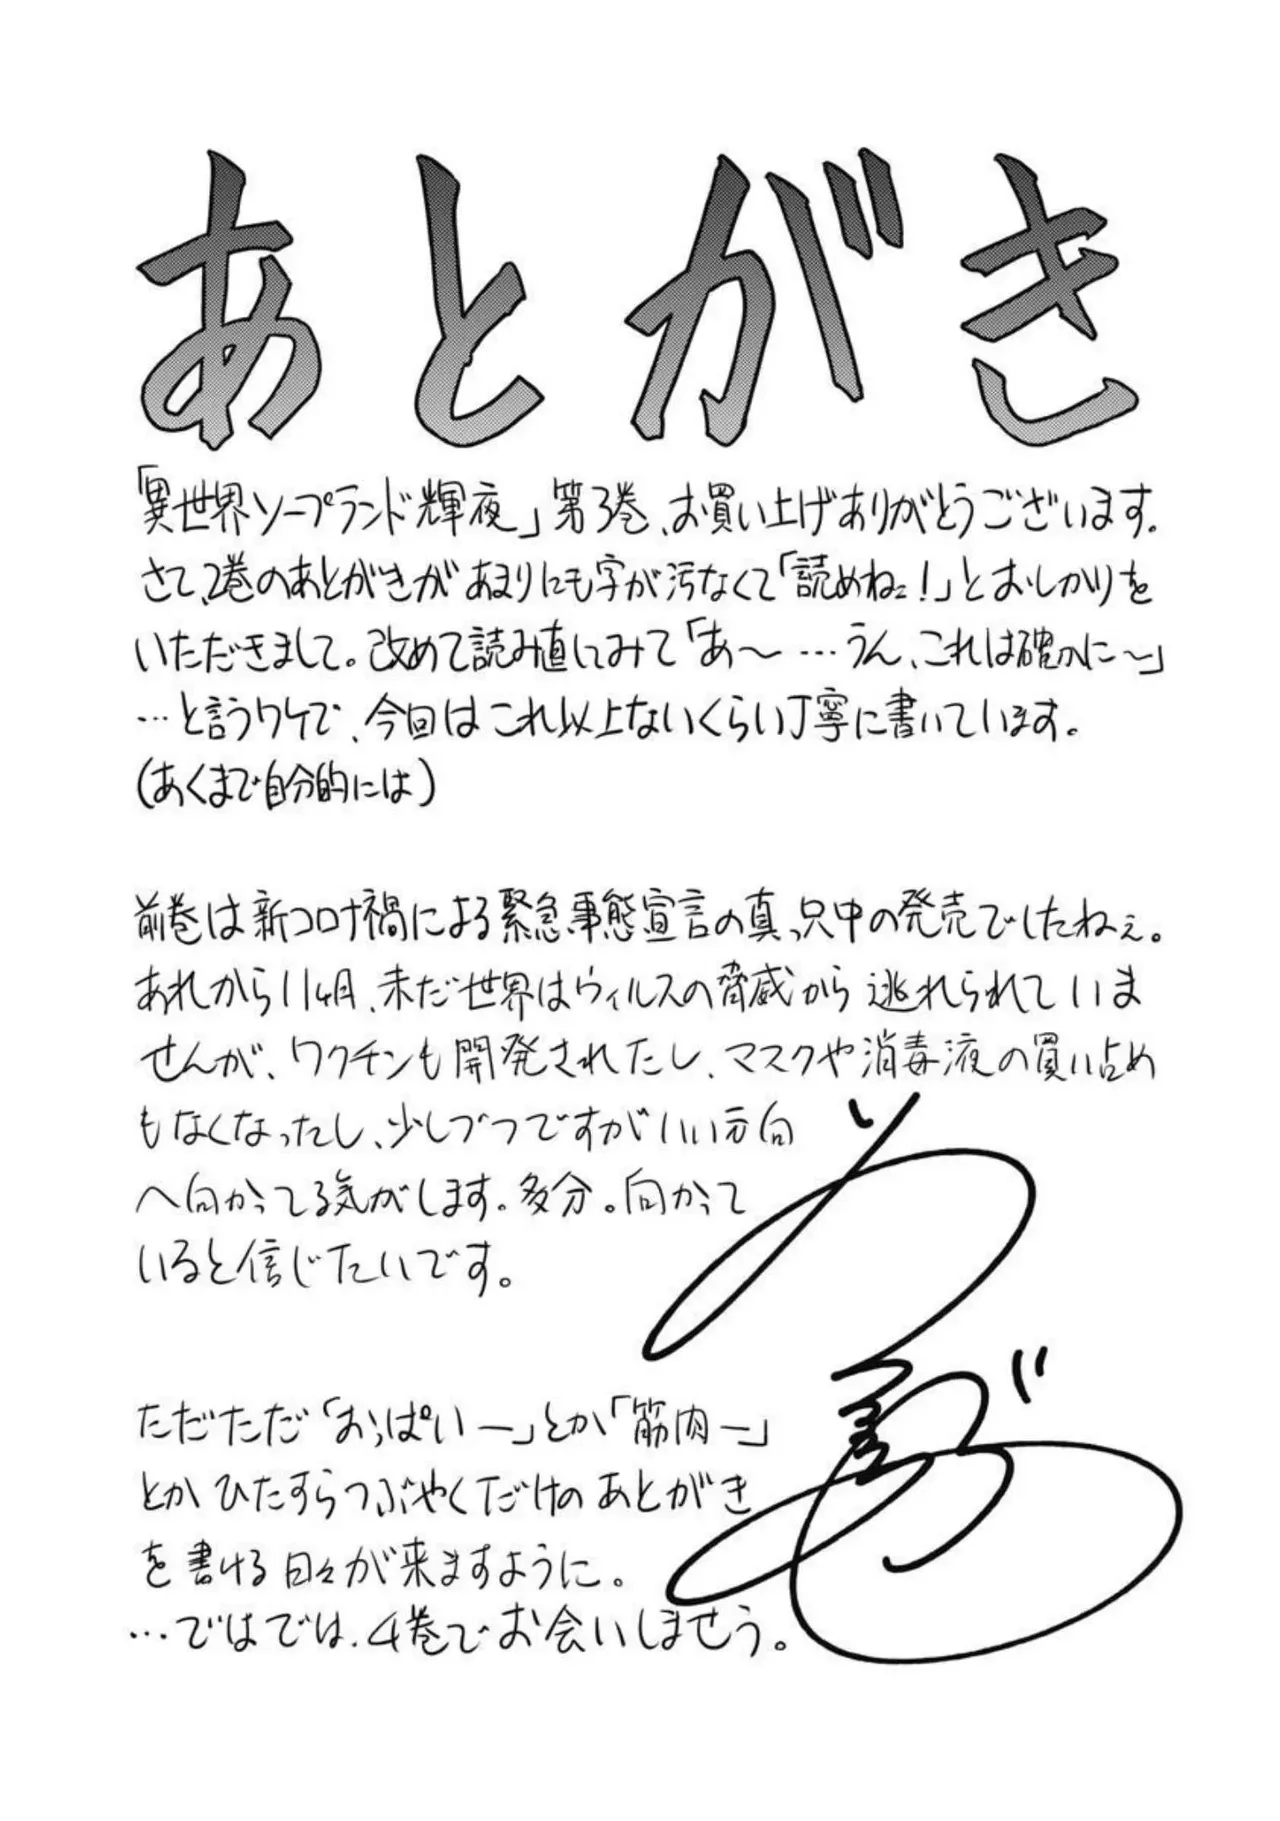 あとがき
「異世界ソープランド輝夜」第3巻、お買い上げありがとうございます。
さて、2巻のあとがきがあまりにも字が汚なくて「読めねェ!」とおしかりを
いただきまして。改めて読み直してみて「あ〜…うん、これは確かに〜」
…と言うワケで、今回はこれ以上ないくらい丁寧に書いています。
(あくまで自分的には)
前巻は新コロナ禍による緊急事態宣言の真っ只中の発売でしたねぇ。
あれから11ヶ月、未だ世界はウィルスの脅威から逃れられていま
せんが、ワクチンも開発されたし、マスクや消毒液の買い占め
もなくなったし、少しづつですがいい方向
へ向かってる気がします。多分。向かって
いると信じたいです。
ただただ「おっぱいー」とか「筋肉ー」
とかひたすらつぶやくだけのあとがき
を書ける日々が来ますように。
…ではでは、4巻でお会いしませう。